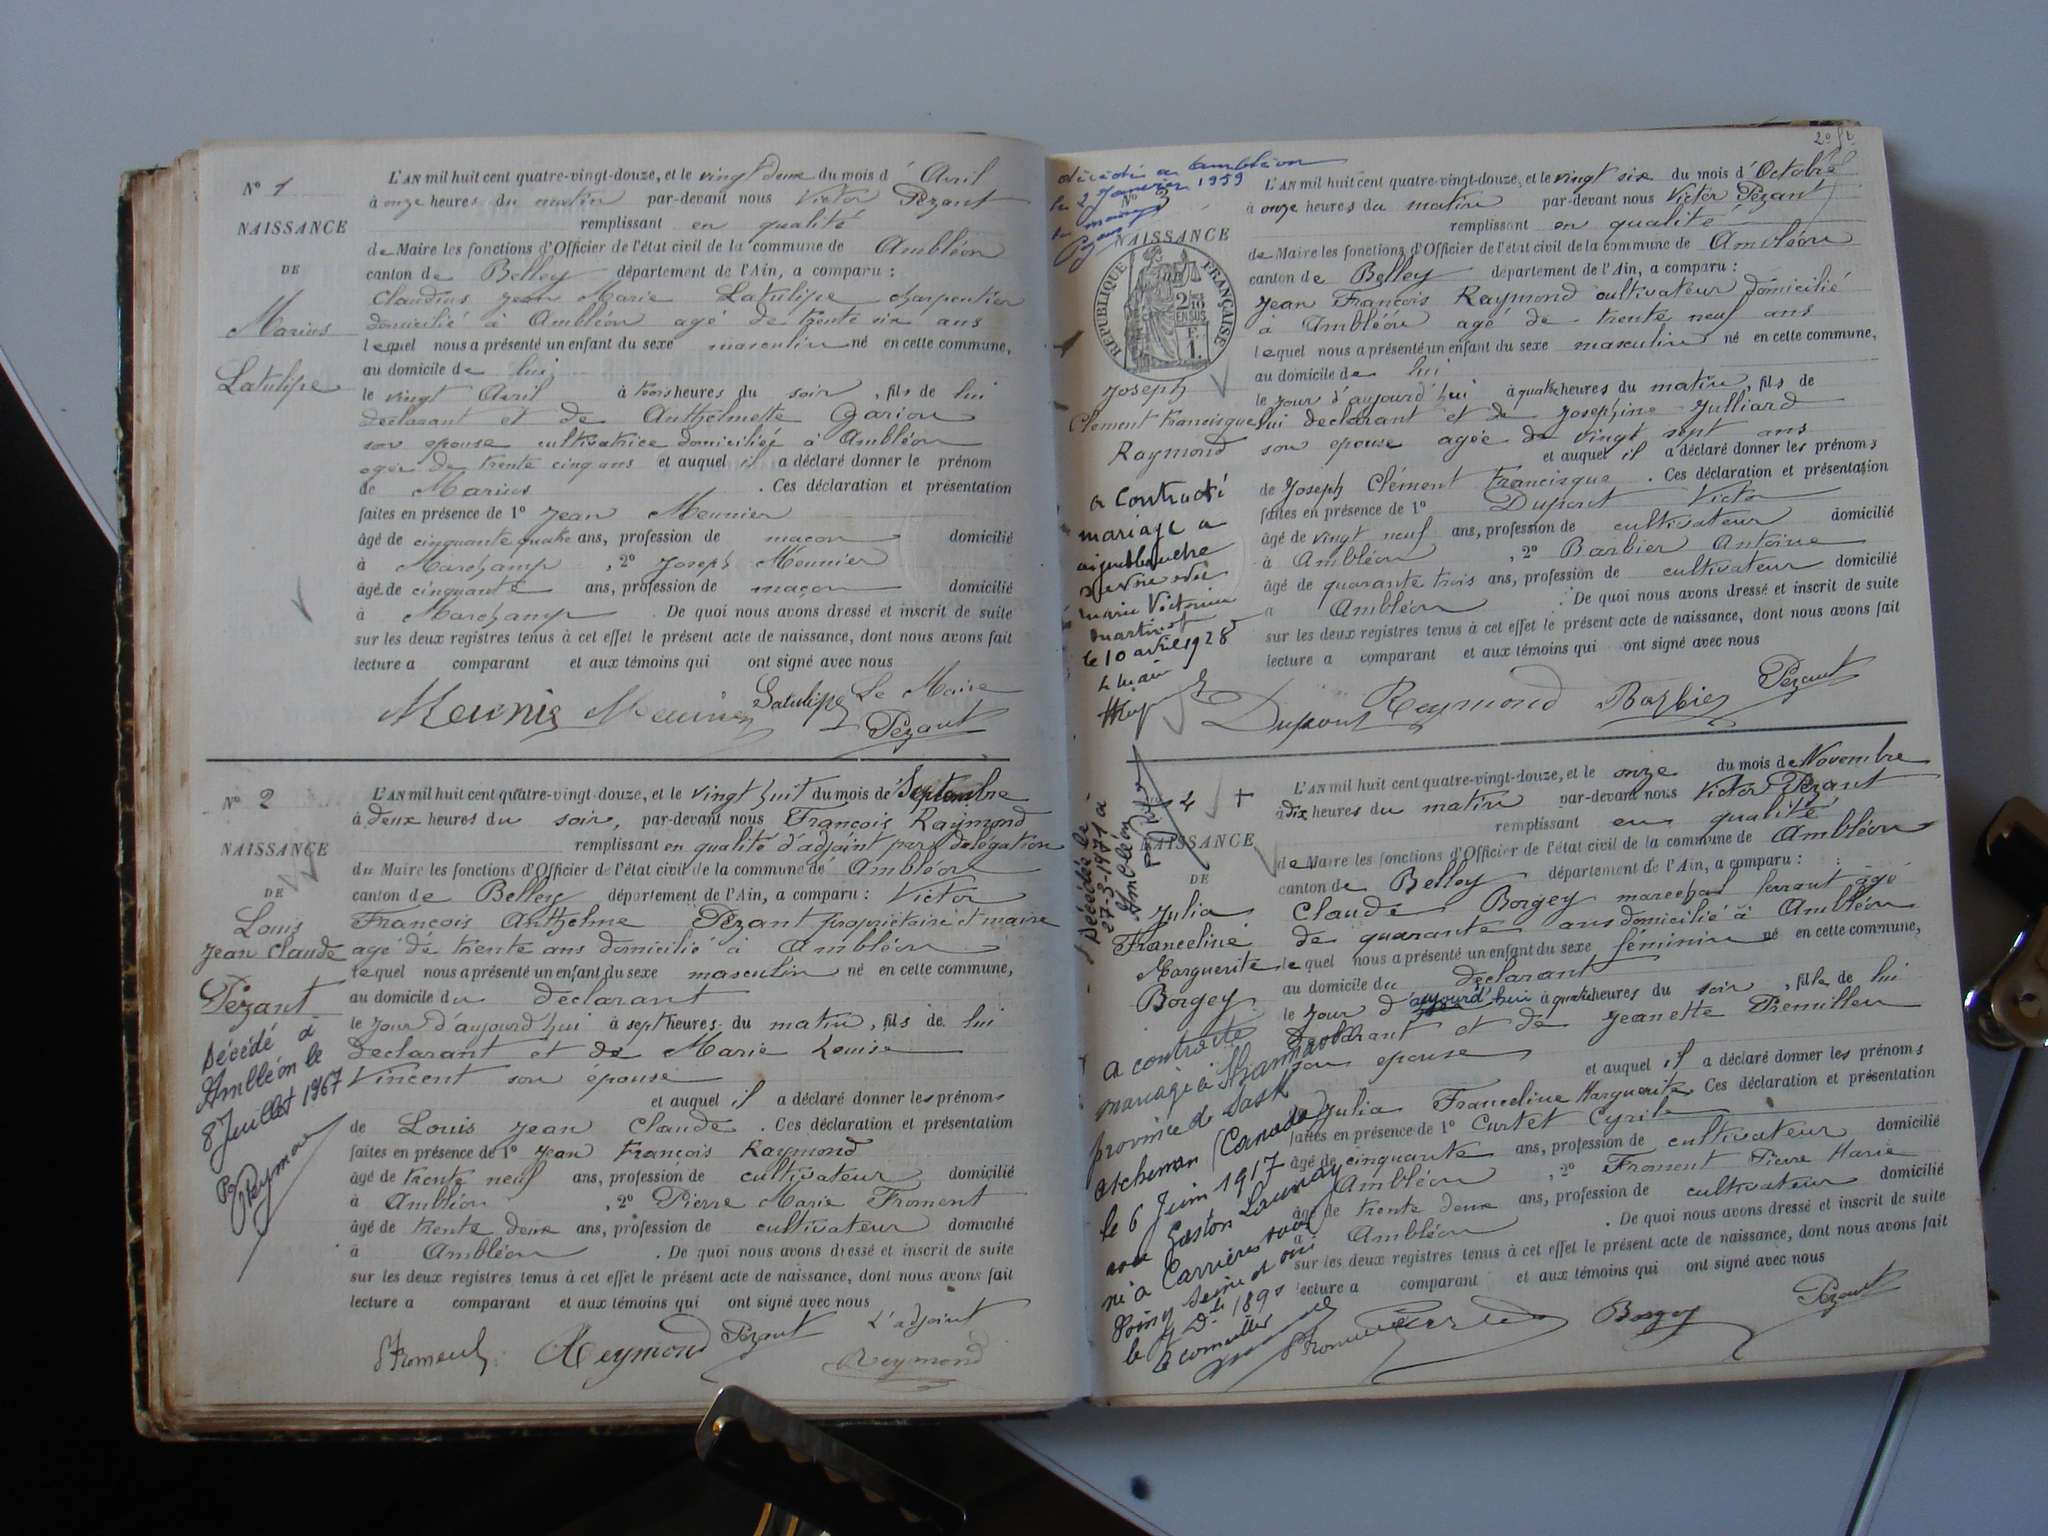 N° 1
NAISSANCE
DE
Marius
Latulipe
L'AN mil huit cent quatre-vingt-douze, et le vingt deux du mois d' Avril
à onze heures du matin par-devant nous Victor Pézant
remplissant en qualité
de Maire les fonctions d'Officier de l'état civil de la commune de Ambléon
canton de Belley département de l'Ain, a comparu :
Claudius Jean Marie Latulipe charpentier
domicilié à Ambléon agé de trente six ans
lequel nous a présenté un enfant du sexe masculin né en cette commune,
au domicile de lui
le vingt Avril à trois heures du soir, fils de lui
declarant et de Anthelmette Gariou
son epouse cultivatrice domiciliée à Ambléon
agée de trente cinq ans et auquel il a déclaré donner le prénom
de Marius . Ces déclaration et présentation
faites en présence de 1° Jean Meunier
âgé de cinquante quatre ans, profession de maçon domicilié
à Marchamp , 2° Joseph Meunier
âgé de cinquante ans, profession de maçon domicilié
à Marchamp . De quoi nous avons dressé et inscrit de suite
sur les deux registres tenus à cet effet le présent acte de naissance, dont nous avons fait
lecture a comparant et aux témoins qui ont signé avec nous
Latulipe Le Maire
Pézant
N° 2
NAISSANCE
DE
Louis
Jean Claude
Pézant
Décédé à
Ambléon le
8 Juillet 1967
Reymond
L'AN mil huit cent quatre-vingt-douze, et le vingt huit du mois de Septembre
à deux heures du soir, par-devant nous François Raymond
remplissant en qualité d'adjoint par délégation
du Maire les fonctions d'Officier de l'état civil de la commune de Ambléon
canton de Belley département de l'Ain, a comparu : Victor
François Anthelme Pézant propriétaire et maire
agé de trente ans domicilié à Ambléon
lequel nous a présenté un enfant du sexe masculin né en cette commune,
au domicile du declarant
le jour d'aujourd'hui à sept heures du matin, fils de lui
declarant et de Marie Louise
Vincent son épouse
et auquel il a déclaré donner les prénoms
de Louis Jean Claude . Ces déclaration et présentation
faites en présence de 1° Jean François Raymond
âgé de trente neuf ans, profession de cultivateur domicilié
à Ambléon , 2° Pierre Marie Froment
âgé de trente deux ans, profession de cultivateur domicilié
à Ambléon . De quoi nous avons dressé et inscrit de suite
sur les deux registres tenus à cet effet le présent acte de naissance, dont nous avons fait
lecture a comparant et aux témoins qui ont signé avec nous
L'adjoint
Froment Reymond Pézant Reymond
décédé a Ambléon
le 2 Janvier 1959
N° 3
NAISSANCE
RÉPUBLIQUE FRANÇAISE
2/10 EN SUS
1 F.
Joseph
Clément Francisque
Raymond
a contracté
mariage a
aiguebelle
marie Victorine
martin
le 10 avril 1928
L'AN mil huit cent quatre-vingt-douze, et le vingt six du mois d'Octobre
à onze heures du matin par-devant nous Victor Pézant
remplissant en qualité
de Maire les fonctions d'Officier de l'état civil de la commune de Ambléon
canton de Belley département de l'Ain, a comparu :
Jean François Raymond cultivateur domicilié
à Ambléon agé de trente neuf ans
lequel nous a présenté un enfant du sexe masculin né en cette commune,
au domicile de lui
le jour d'aujourd'hui à quatre heures du matin, fils de
lui declarant et de Josephine Julliard
son epouse agée de vingt sept ans
et auquel il a déclaré donner les prénoms
de Joseph Clément Francisque . Ces déclaration et présentation
faites en présence de 1° Dupont Victor
âgé de vingt neuf ans, profession de cultivateur domicilié
à Ambléon , 2° Barbier Antoine
âgé de quarante trois ans, profession de cultivateur domicilié
à Ambléon . De quoi nous avons dressé et inscrit de suite
sur les deux registres tenus à cet effet le présent acte de naissance, dont nous avons fait
lecture a comparant et aux témoins qui ont signé avec nous
Dupont Reymond Barbier Pézant
4
NAISSANCE
DE
Décédée le
27-3-1971 à
Ambléon
Julia
Franceline
Marguerite
Borgey
a contracté
mariage à
province de Sask
atchewan (Canada)
le 6 Juin 1917
avec Gaston Launay
né à Carrières sous
Poissy Seine et oise
le 4 Dbre 189
L'AN mil huit cent quatre-vingt-douze, et le onze du mois de Novembre
à dix heures du matin par-devant nous Victor Pézant
remplissant en qualité
de Maire les fonctions d'Officier de l'état civil de la commune de Ambléon
canton de Belley département de l'Ain, a comparu :
Claude Borgey marechal ferrant agé
de quarante ans domicilié à Ambléon
lequel nous a présenté un enfant du sexe féminin né en cette commune,
au domicile du declarant
le jour d'aujourd'hui à quatre heures du soir, fille de lui
declarant et de Jeanette Tremillon
son epouse
et auquel il a déclaré donner les prénoms
Julia Franceline Marguerite. Ces déclaration et présentation
faites en présence de 1° Curtet Cyrile
âgé de cinquante ans, profession de cultivateur domicilié
Ambléon , 2° Froment Pierre Marie
âgé de trente deux ans, profession de cultivateur domicilié
à Ambléon . De quoi nous avons dressé et inscrit de suite
sur les deux registres tenus à cet effet le présent acte de naissance, dont nous avons fait
lecture a comparant et aux témoins qui ont signé avec nous
Borgey Pézant